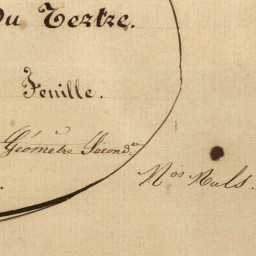 Du Tertre.
Feuille.
Géomètre Second.re
Nos Nuls.